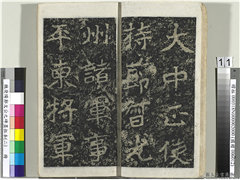 大中正使
持節督光
州諸軍事
平東將軍
11